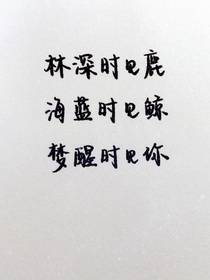 林深时见鹿
海蓝时见鲸
梦醒时见你